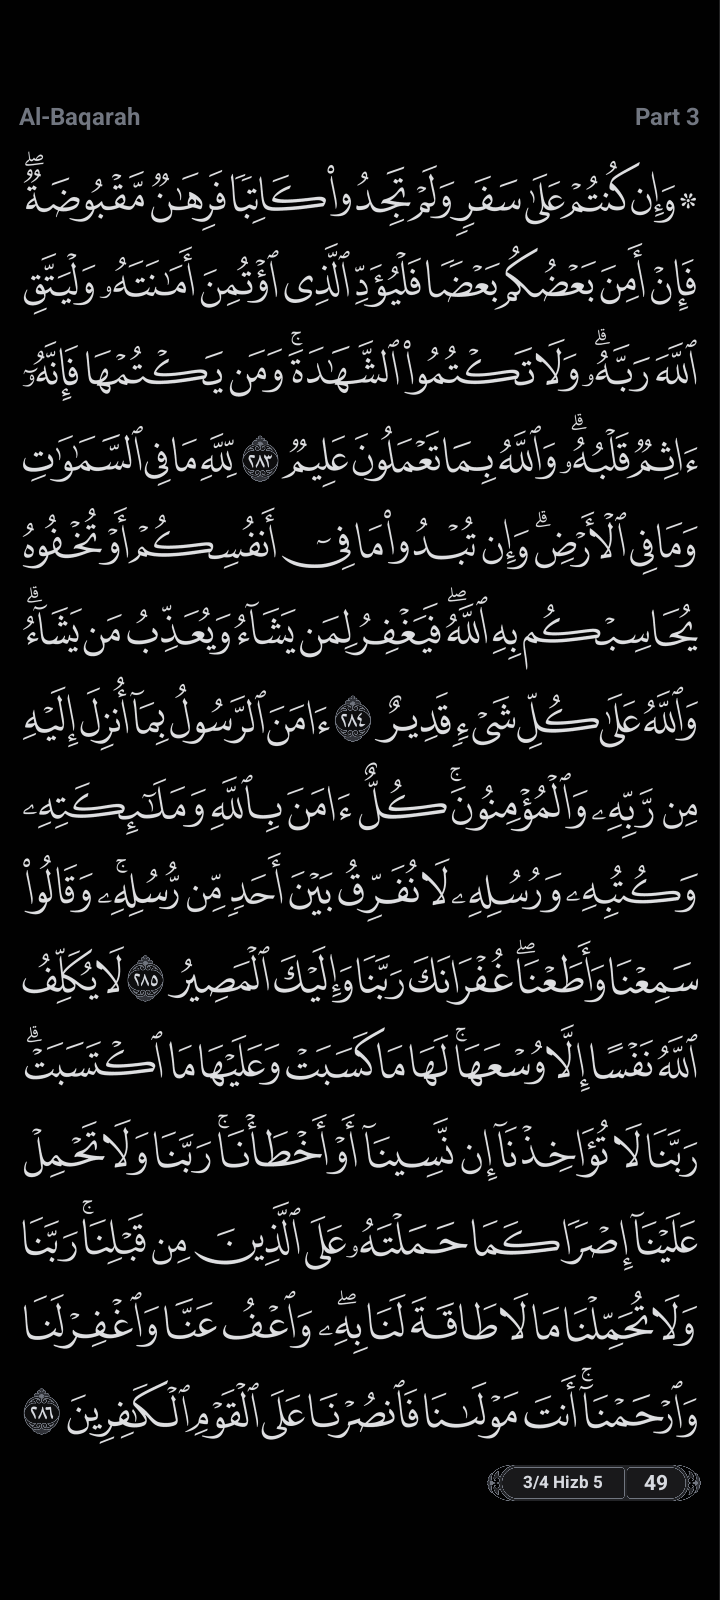 Al-Baqarah Part 3
۞ وَإِن كُنتُمْ عَلَىٰ سَفَرٍ وَلَمْ تَجِدُوا۟ كَاتِبًا فَرِهَـٰنٌ مَّقْبُوضَةٌ ۖ
فَإِنْ أَمِنَ بَعْضُكُم بَعْضًا فَلْيُؤَدِّ ٱلَّذِى ٱؤْتُمِنَ أَمَـٰنَتَهُۥ وَلْيَتَّقِ
ٱللَّهَ رَبَّهُۥ ۗ وَلَا تَكْتُمُوا۟ ٱلشَّهَـٰدَةَ ۚ وَمَن يَكْتُمْهَا فَإِنَّهُۥٓ
ءَاثِمٌ قَلْبُهُۥ ۗ وَٱللَّهُ بِمَا تَعْمَلُونَ عَلِيمٌ ٢٨٣ لِّلَّهِ مَا فِى ٱلسَّمَـٰوَٰتِ
وَمَا فِى ٱلْأَرْضِ ۗ وَإِن تُبْدُوا۟ مَا فِىٓ أَنفُسِكُمْ أَوْ تُخْفُوهُ
يُحَاسِبْكُم بِهِ ٱللَّهُ ۖ فَيَغْفِرُ لِمَن يَشَآءُ وَيُعَذِّبُ مَن يَشَآءُ ۗ
وَٱللَّهُ عَلَىٰ كُلِّ شَىْءٍ قَدِيرٌ ٢٨٤ ءَامَنَ ٱلرَّسُولُ بِمَآ أُنزِلَ إِلَيْهِ
مِن رَّبِّهِۦ وَٱلْمُؤْمِنُونَ ۚ كُلٌّ ءَامَنَ بِٱللَّهِ وَمَلَـٰٓئِكَتِهِۦ
وَكُتُبِهِۦ وَرُسُلِهِۦ لَا نُفَرِّقُ بَيْنَ أَحَدٍ مِّن رُّسُلِهِۦ ۚ وَقَالُوا۟
سَمِعْنَا وَأَطَعْنَا ۖ غُفْرَانَكَ رَبَّنَا وَإِلَيْكَ ٱلْمَصِيرُ ٢٨٥ لَا يُكَلِّفُ
ٱللَّهُ نَفْسًا إِلَّا وُسْعَهَا ۚ لَهَا مَا كَسَبَتْ وَعَلَيْهَا مَا ٱكْتَسَبَتْ ۗ
رَبَّنَا لَا تُؤَاخِذْنَآ إِن نَّسِينَآ أَوْ أَخْطَأْنَا ۚ رَبَّنَا وَلَا تَحْمِلْ
عَلَيْنَآ إِصْرًا كَمَا حَمَلْتَهُۥ عَلَى ٱلَّذِينَ مِن قَبْلِنَا ۚ رَبَّنَا
وَلَا تُحَمِّلْنَا مَا لَا طَاقَةَ لَنَا بِهِۦ ۖ وَٱعْفُ عَنَّا وَٱغْفِرْ لَنَا
وَٱرْحَمْنَآ ۚ أَنتَ مَوْلَىٰنَا فَٱنصُرْنَا عَلَى ٱلْقَوْمِ ٱلْكَـٰفِرِينَ ٢٨٦
3/4 Hizb 5 49